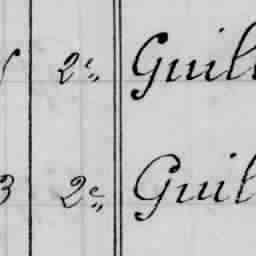 2e„ Guill
3 2e„ Guil